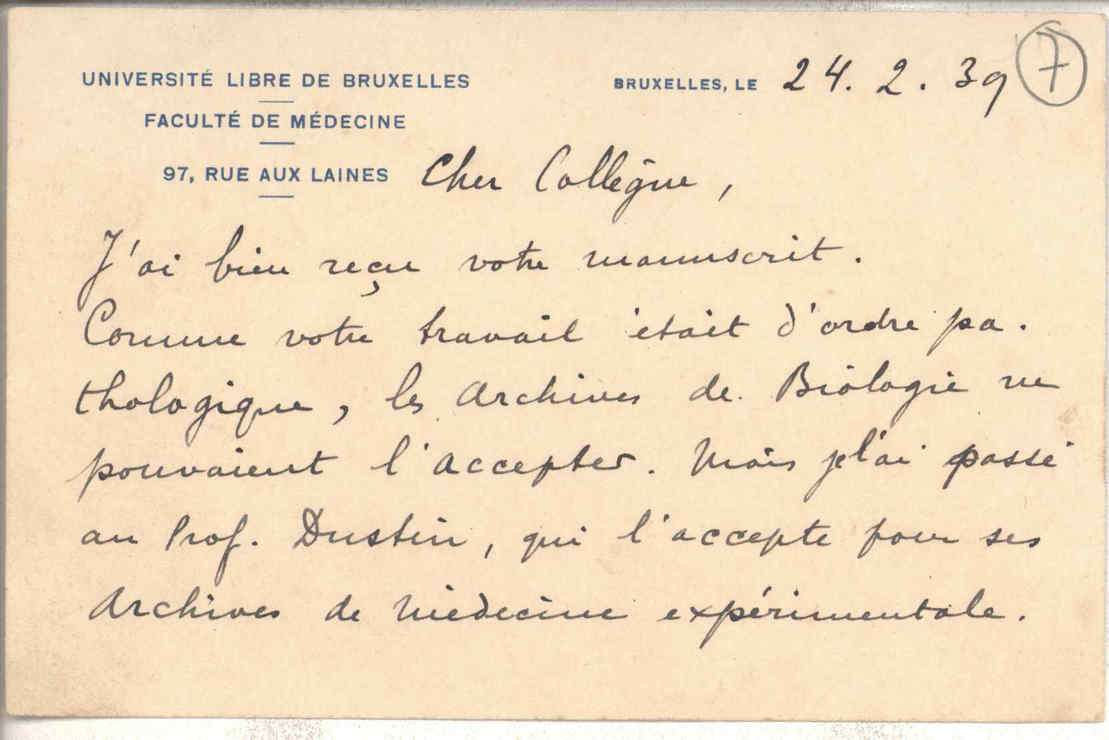 UNIVERSITÉ LIBRE DE BRUXELLES
BRUXELLES, LE 24. 2. 39
7
FACULTÉ DE MÉDECINE
97, RUE AUX LAINES
Cher Collègue,
J'ai bien reçu votre manuscrit.
Comme votre travail était d'ordre pa-
thologique, les Archives de Biologie ne
pouvaient l'accepter. Mais je l'ai passé
au Prof. Dustin, qui l'accepte pour ses
Archives de Médecine expérimentale.